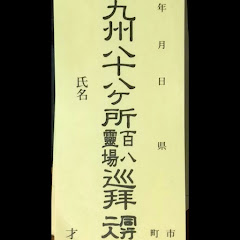 年 月 日 県 市 町
九州八十八ヶ所百八霊場巡拝 同行二人
氏名 才